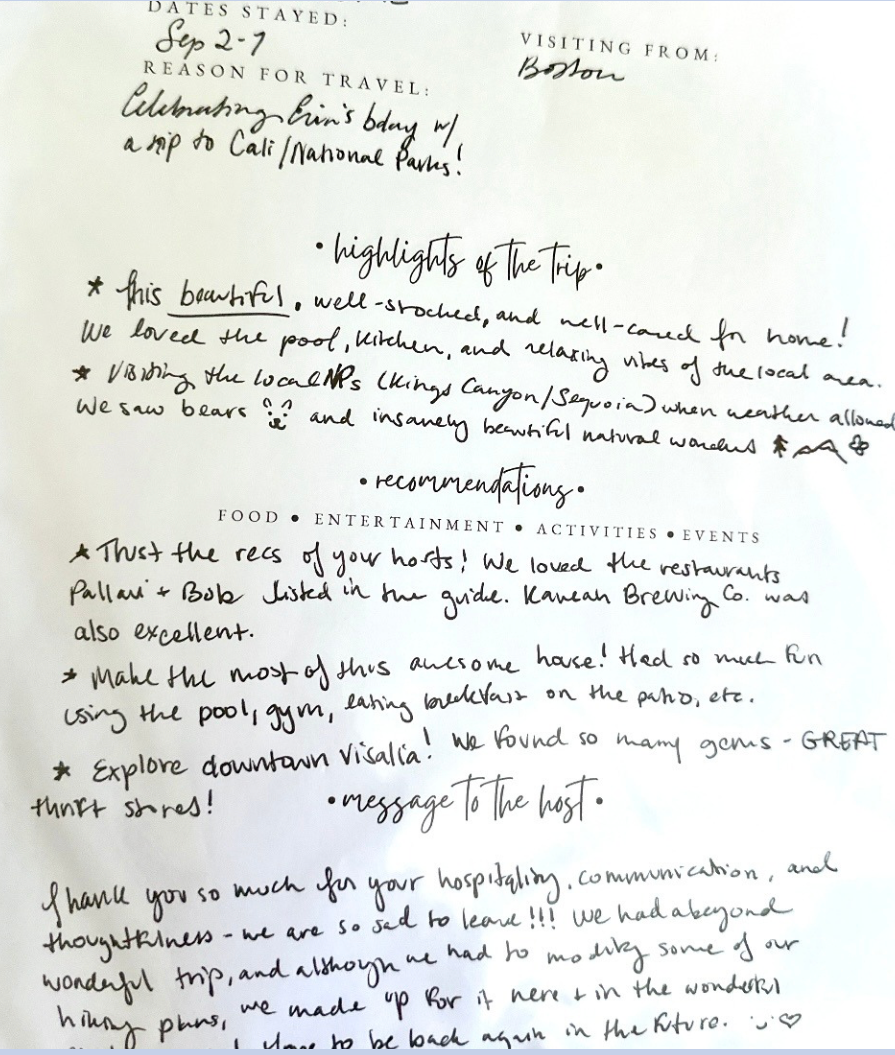 DATES STAYED:
Sep 2-7
VISITING FROM:
Boston
REASON FOR TRAVEL:
Celebrating Erin's bday w/
a trip to Cali/National Parks!
• highlights of the trip •
* This beautiful, well-stocked, and well-cared for home!
We loved the pool, kitchen, and relaxing vibes of the local area.
* Visiting the local NPs (Kings Canyon/Sequoia) when weather allowed
We saw bears and insanely beautiful natural wonders
• recommendations •
FOOD • ENTERTAINMENT • ACTIVITIES • EVENTS
* Trust the recs of your hosts! We loved the restaurants
Pallavi + Bob listed in the guide. Kaweah Brewing Co. was
also excellent.
* Make the most of this awesome house! Had so much fun
using the pool, gym, eating breakfast on the patio, etc.
* Explore downtown Visalia! We found so many gems - GREAT
thrift stores!
• message to the host •
Thank you so much for your hospitality, communication, and
thoughtfulness - we are so sad to leave!!! We had a beyond
wonderful trip, and although we had to modify some of our
hiking plans, we made up for it here + in the wonderful
to be back again in the future.